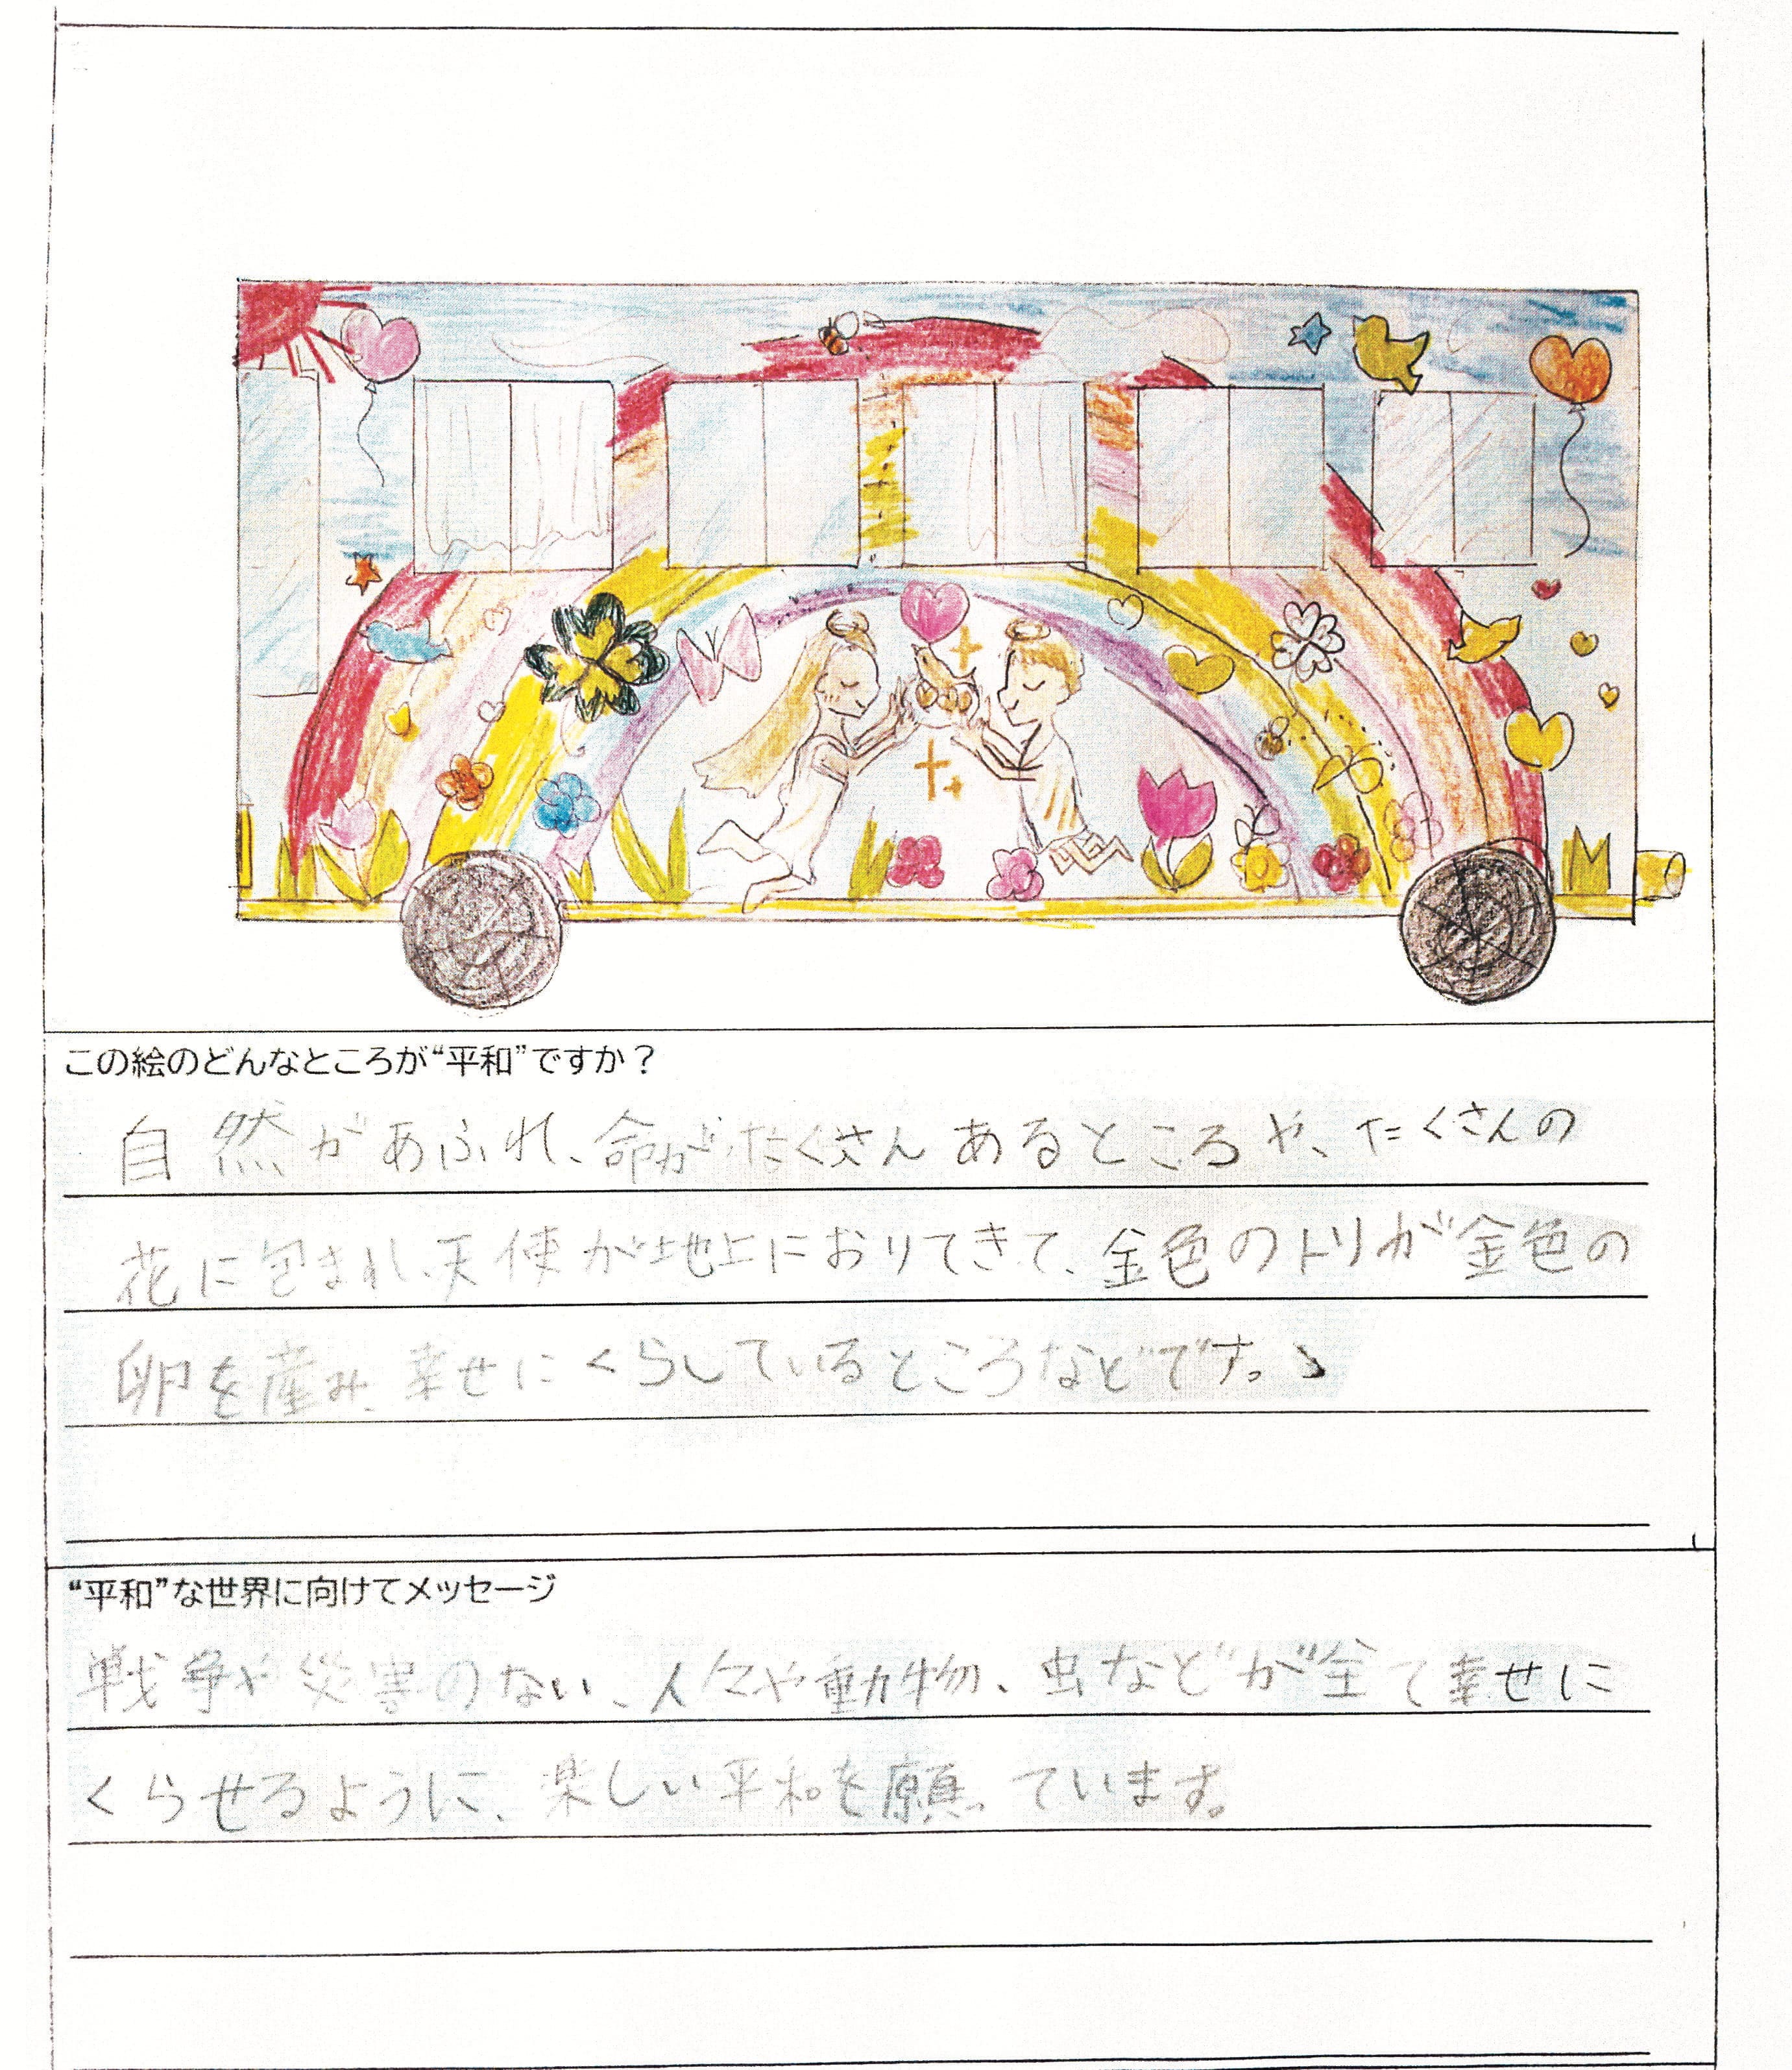 この絵のどんなところが“平和”ですか？
自然があふれ、命がたくさんあるところや、たくさんの
花に包まれ、天使が地上におりてきて、金色のトリが金色の
卵を産み、幸せにくらしているところなどです。
“平和”な世界に向けてメッセージ
戦争や災害のない、人々や動物、虫などが全て幸せに
くらせるように、楽しい平和を願っています。